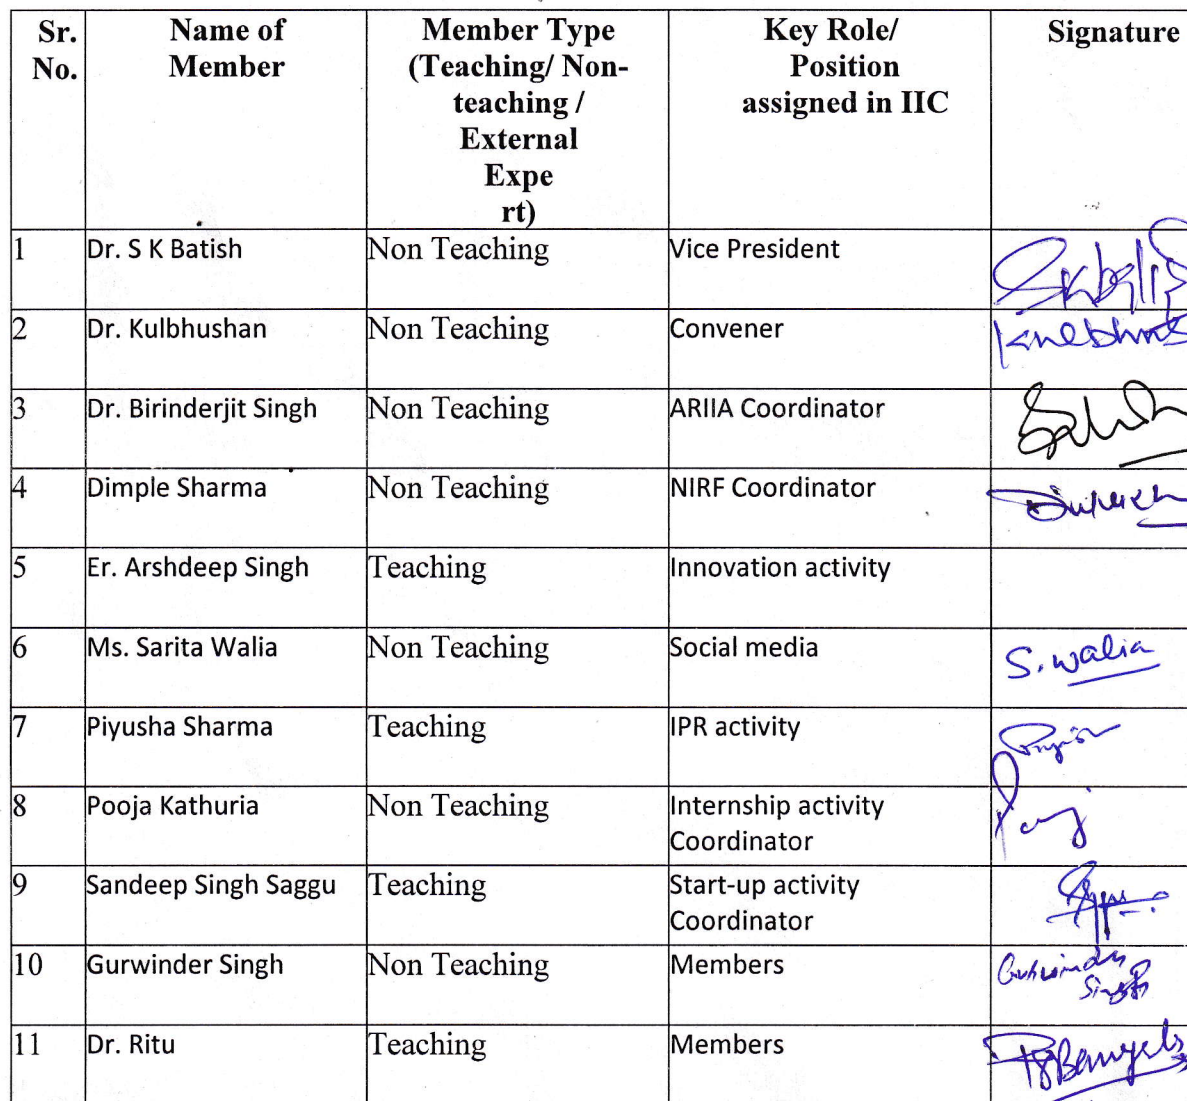 Sr. No. Name of Member Member Type (Teaching/ Non-teaching / External Expe rt) Key Role/ Position assigned in IIC Signature
1 Dr. S K Batish Non Teaching Vice President
2 Dr. Kulbhushan Non Teaching Convener
3 Dr. Birinderjit Singh Non Teaching ARIIA Coordinator
4 Dimple Sharma Non Teaching NIRF Coordinator
5 Er. Arshdeep Singh Teaching Innovation activity
6 Ms. Sarita Walia Non Teaching Social media S. Walia
7 Piyusha Sharma Teaching IPR activity
8 Pooja Kathuria Non Teaching Internship activity Coordinator
9 Sandeep Singh Saggu Teaching Start-up activity Coordinator
10 Gurwinder Singh Non Teaching Members
11 Dr. Ritu Teaching Members